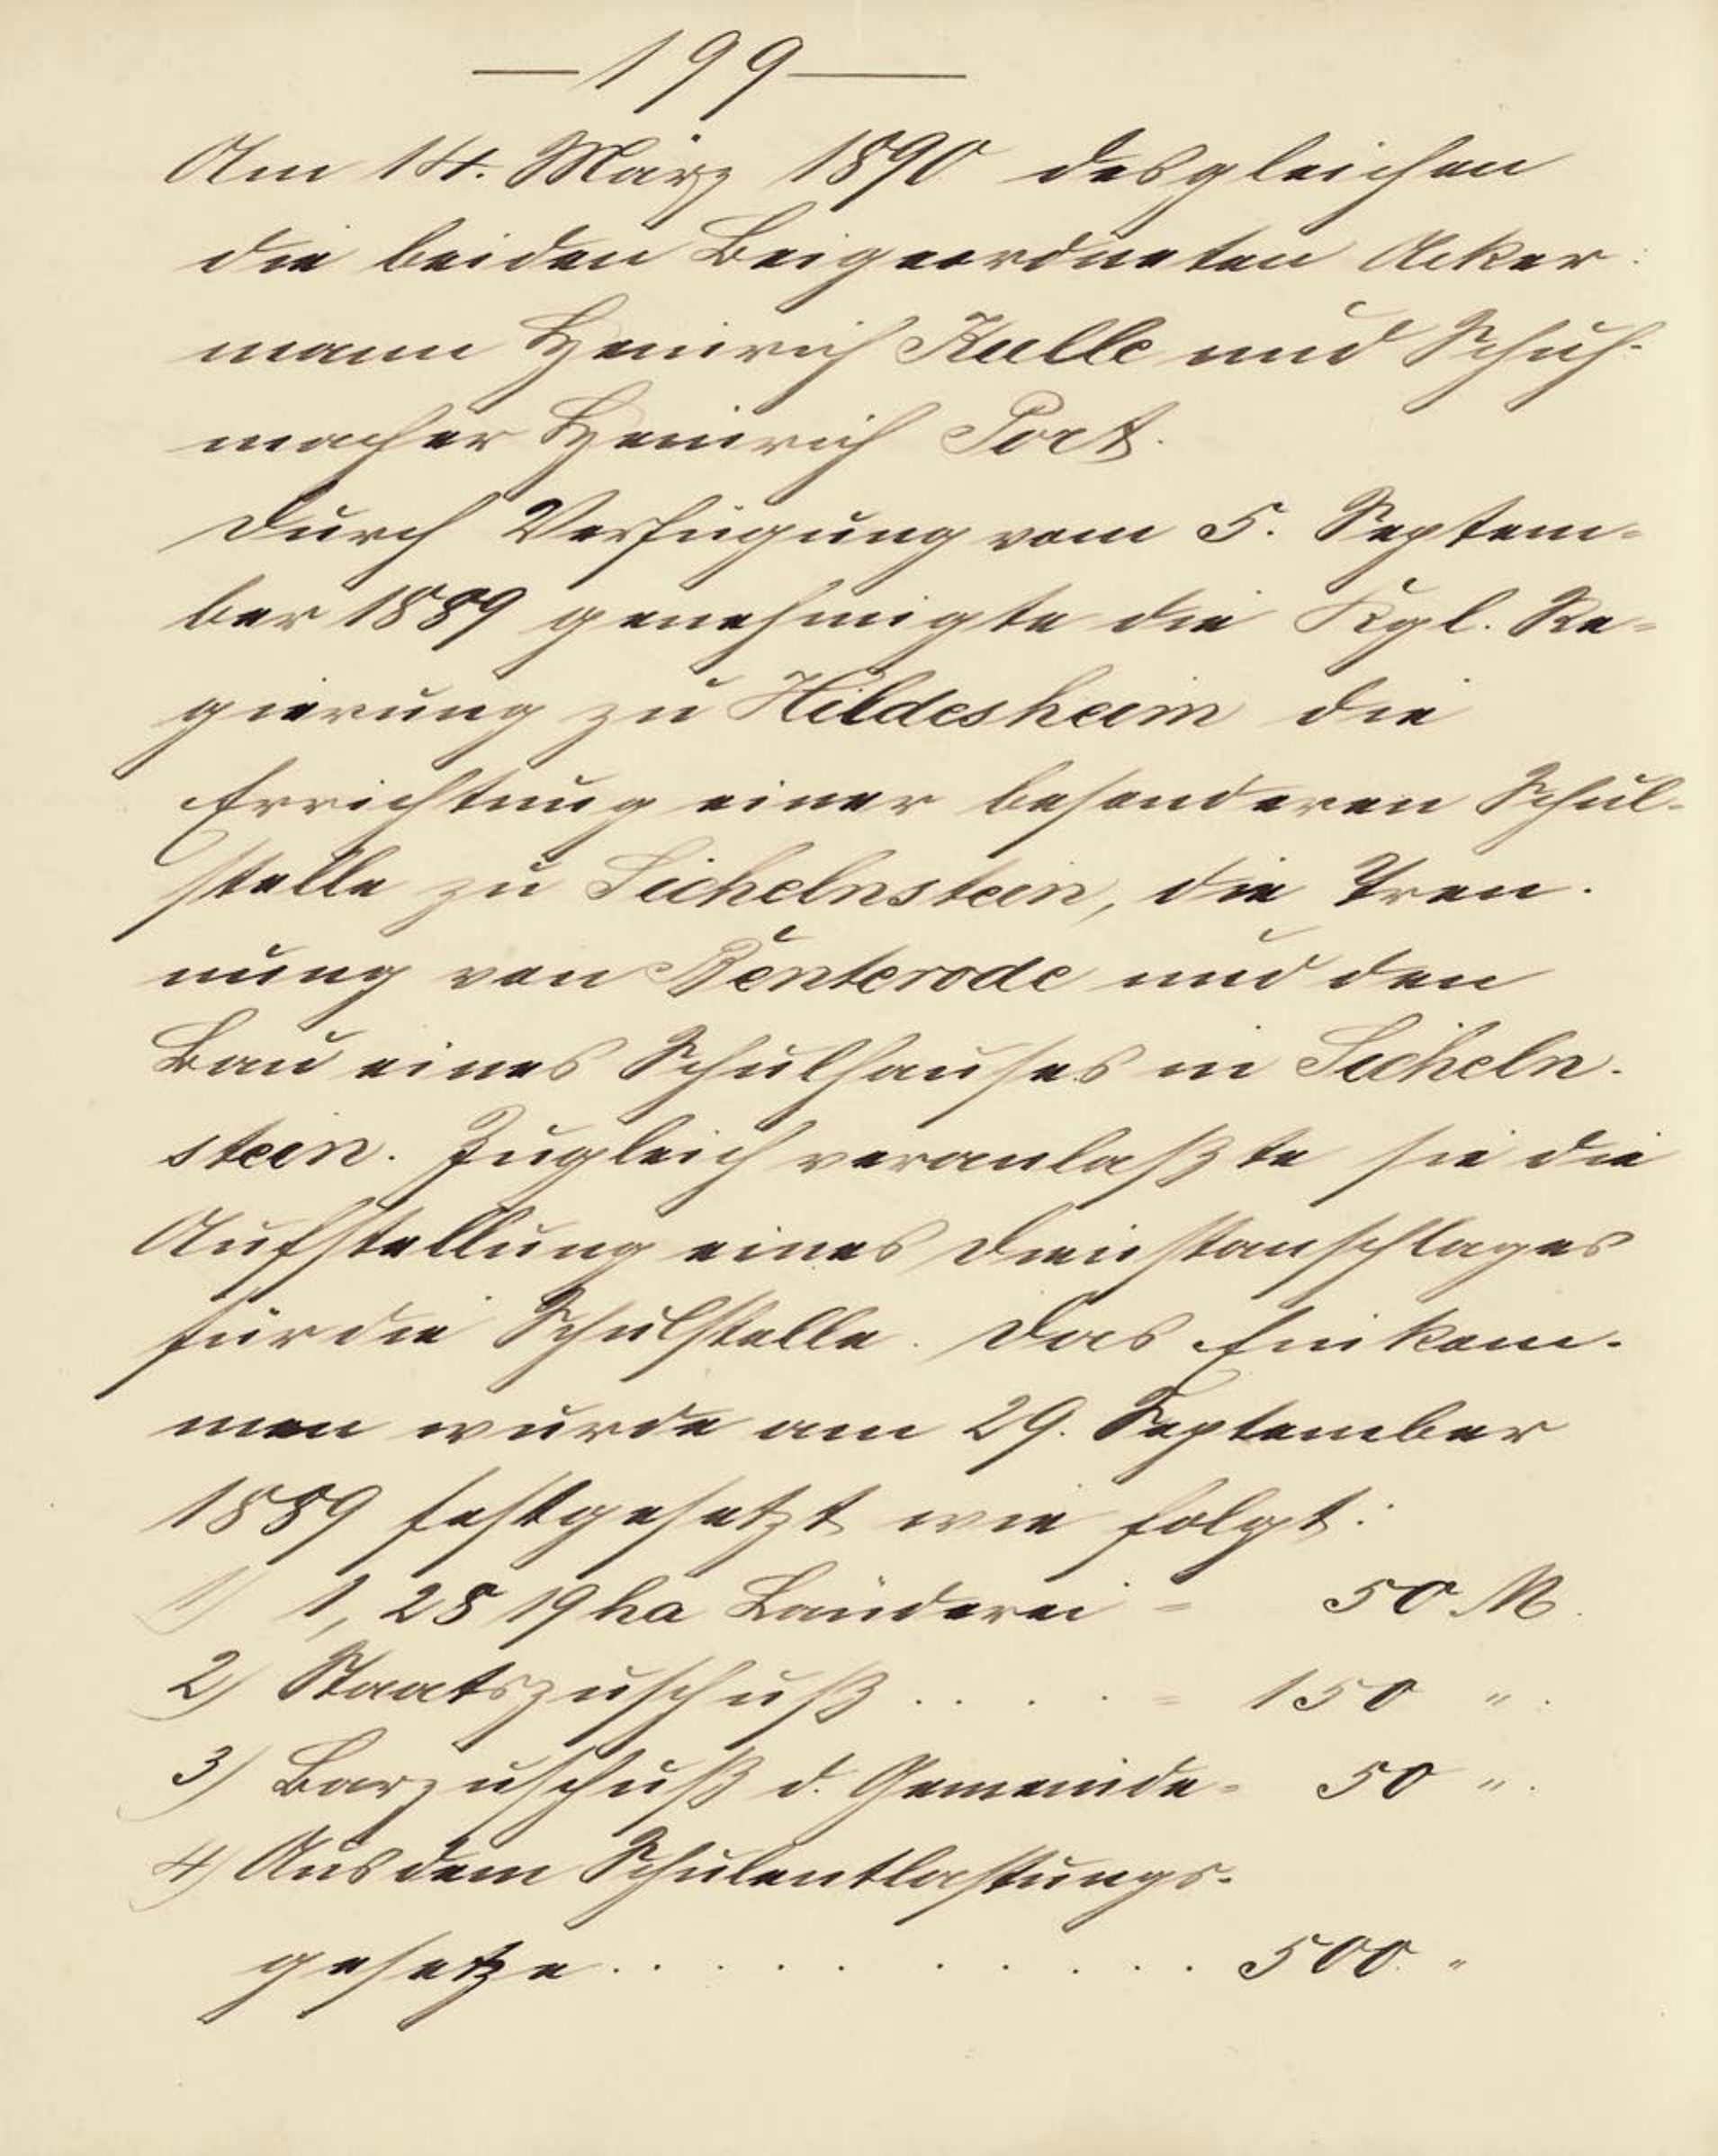 — 199 —
Am 14. März 1890 desgleichen
die beiden Beigeordneten Acker-
mann Heinrich Kulle und Schuh-
macher Heinrich Port.
Durch Verfügung vom 5. Septem-
ber 1889 genehmigte die Kgl. Re-
gierung zu Hildesheim die
Errichtung einer besonderen Schul-
stelle zu Sichelnstein, die Tren-
nung von Benterode und den
Bau eines Schulhauses in Sicheln-
stein. Zugleich veranlaßte sie die
Aufstellung eines Dienstanschlages
für die Schulstelle. Das Einkom-
men wurde am 29. September
1889 festgesetzt wie folgt:
1) 1,2819 ha Länderei = 50 M.
2) Staatszuschuß . . . . = 150 ".
3) Barzuschuß d. Gemeinde = 50 ".
4) Aus dem Schulentlastungs-
gesetze . . . . . . . . . . 500 "